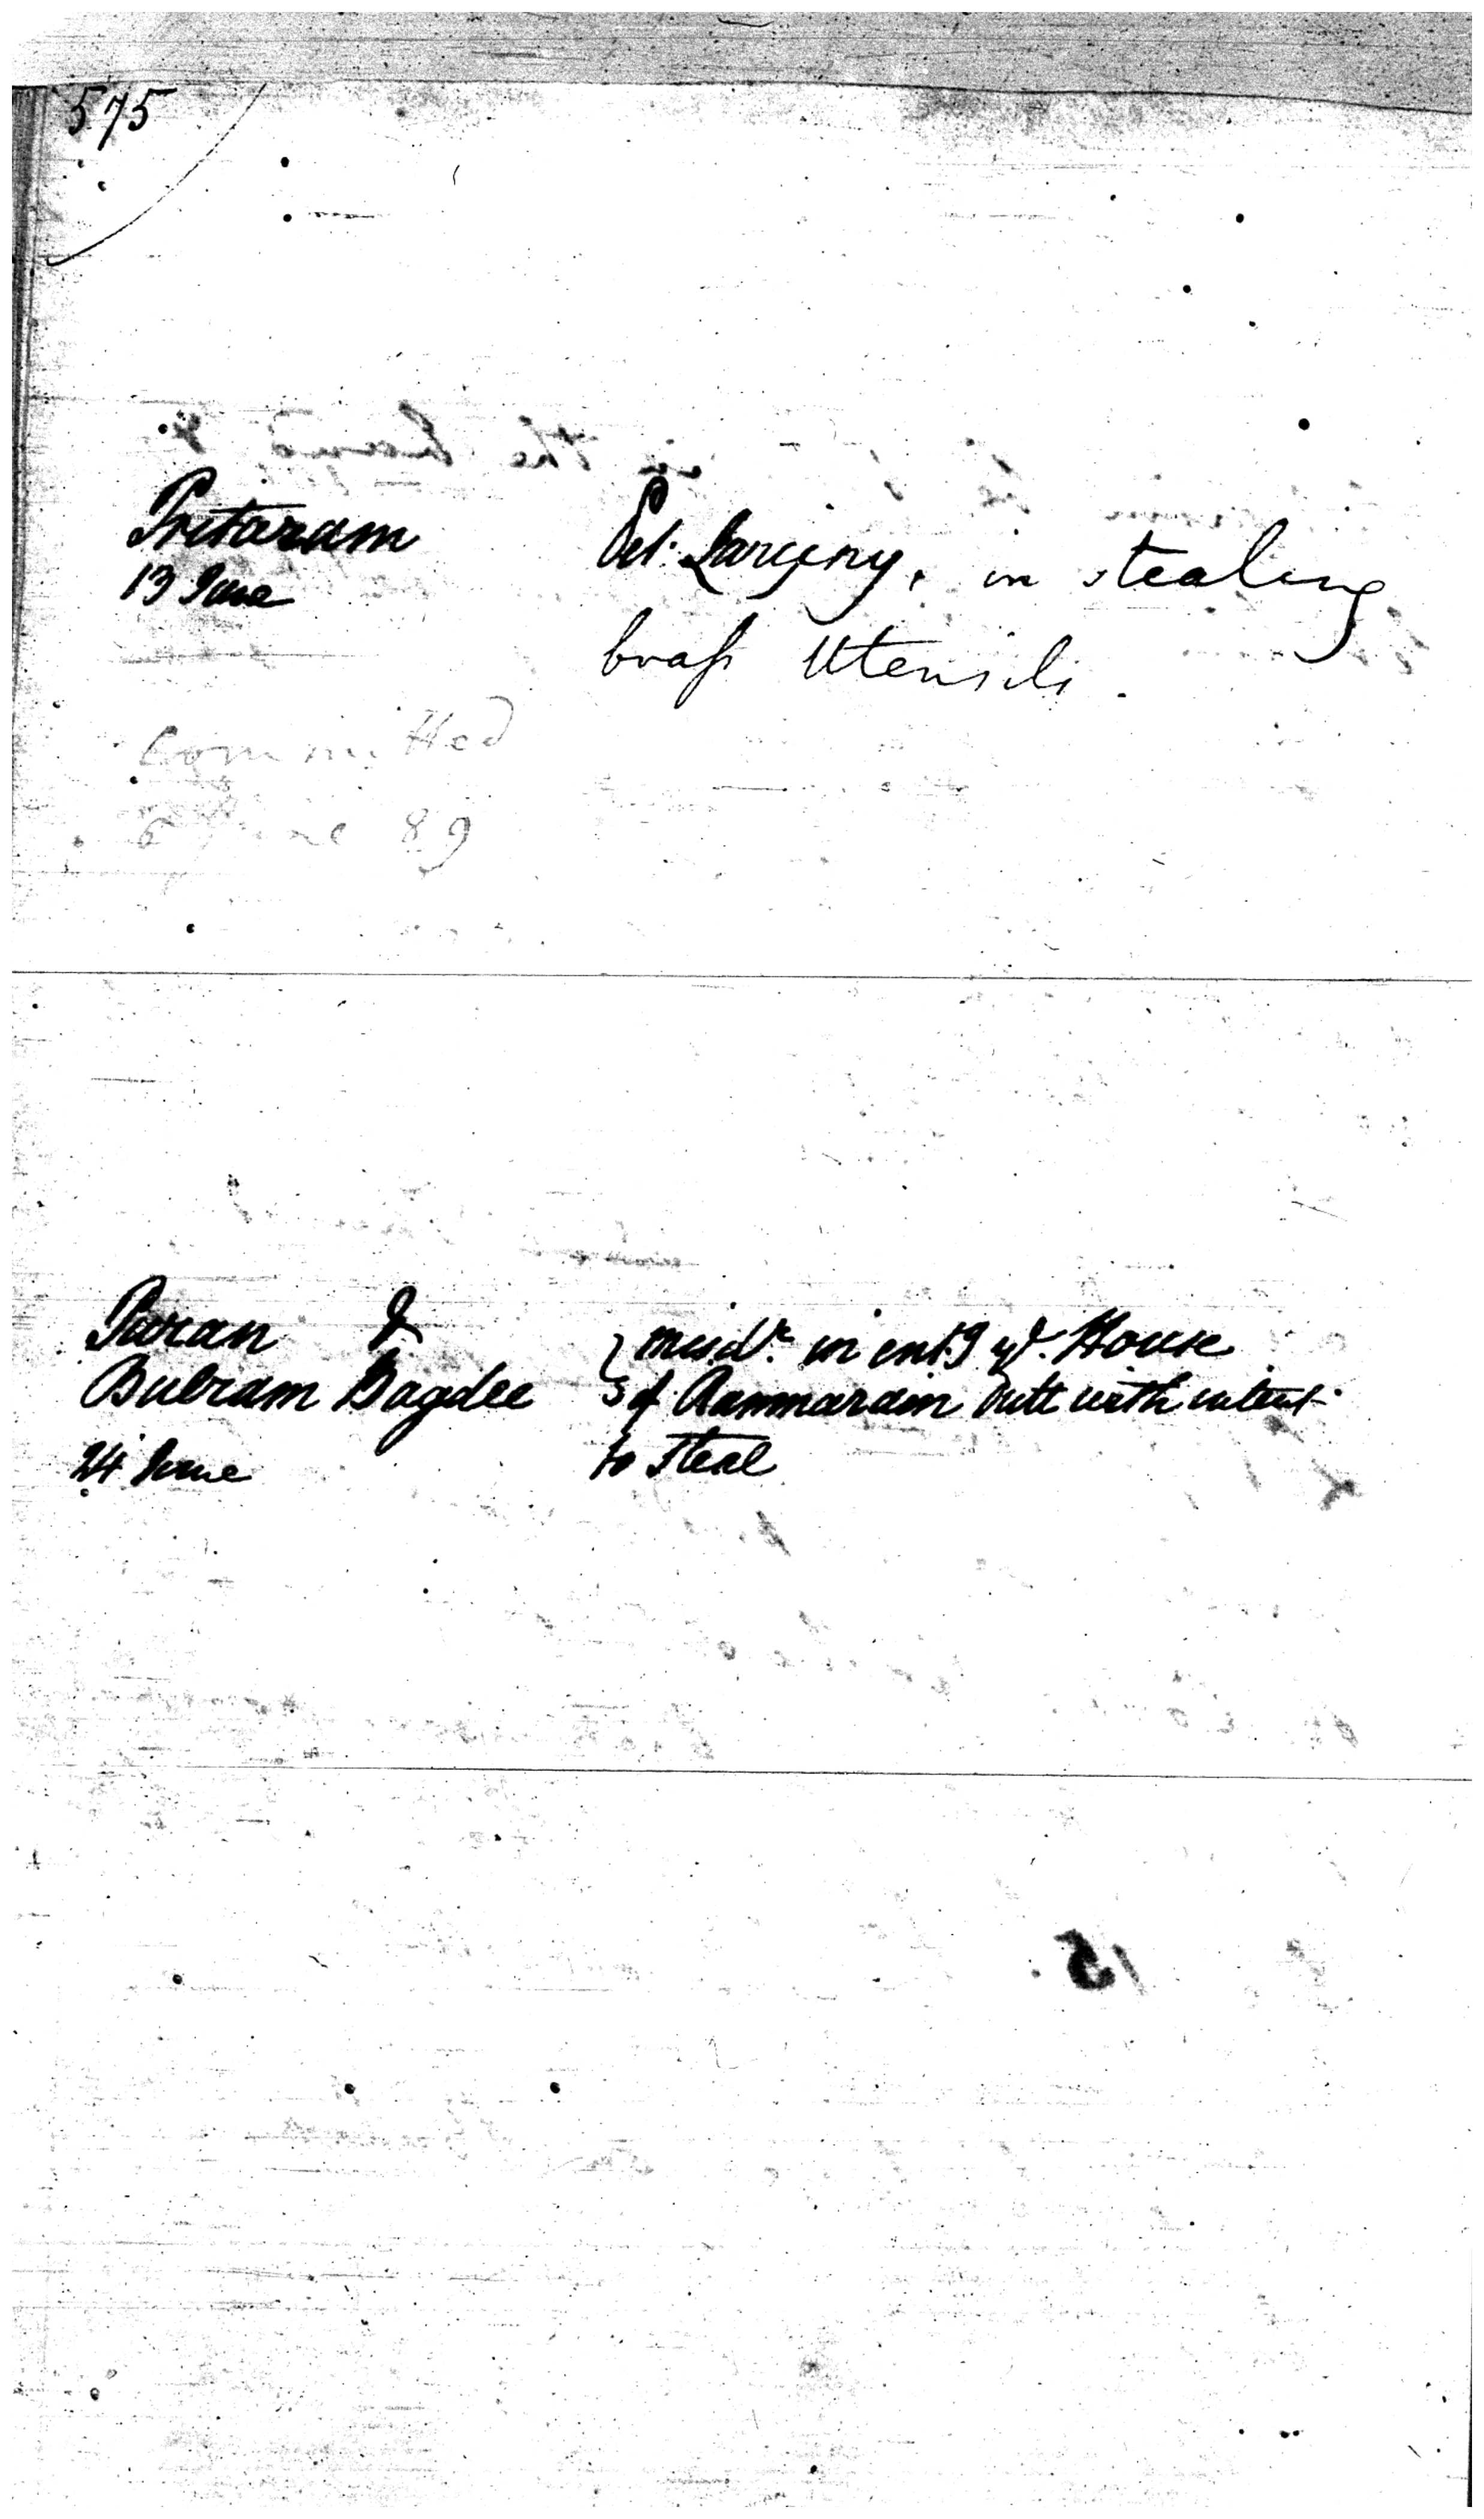 575
Pritaram
13 June
Pet. Larceny, in stealing
braſs Utensils.
Committed
6 June 89
Paran &
Bulram Bagdee
24 June
misdr. in entg ye. House
of Ramnarain Dutt with intent
to Steal